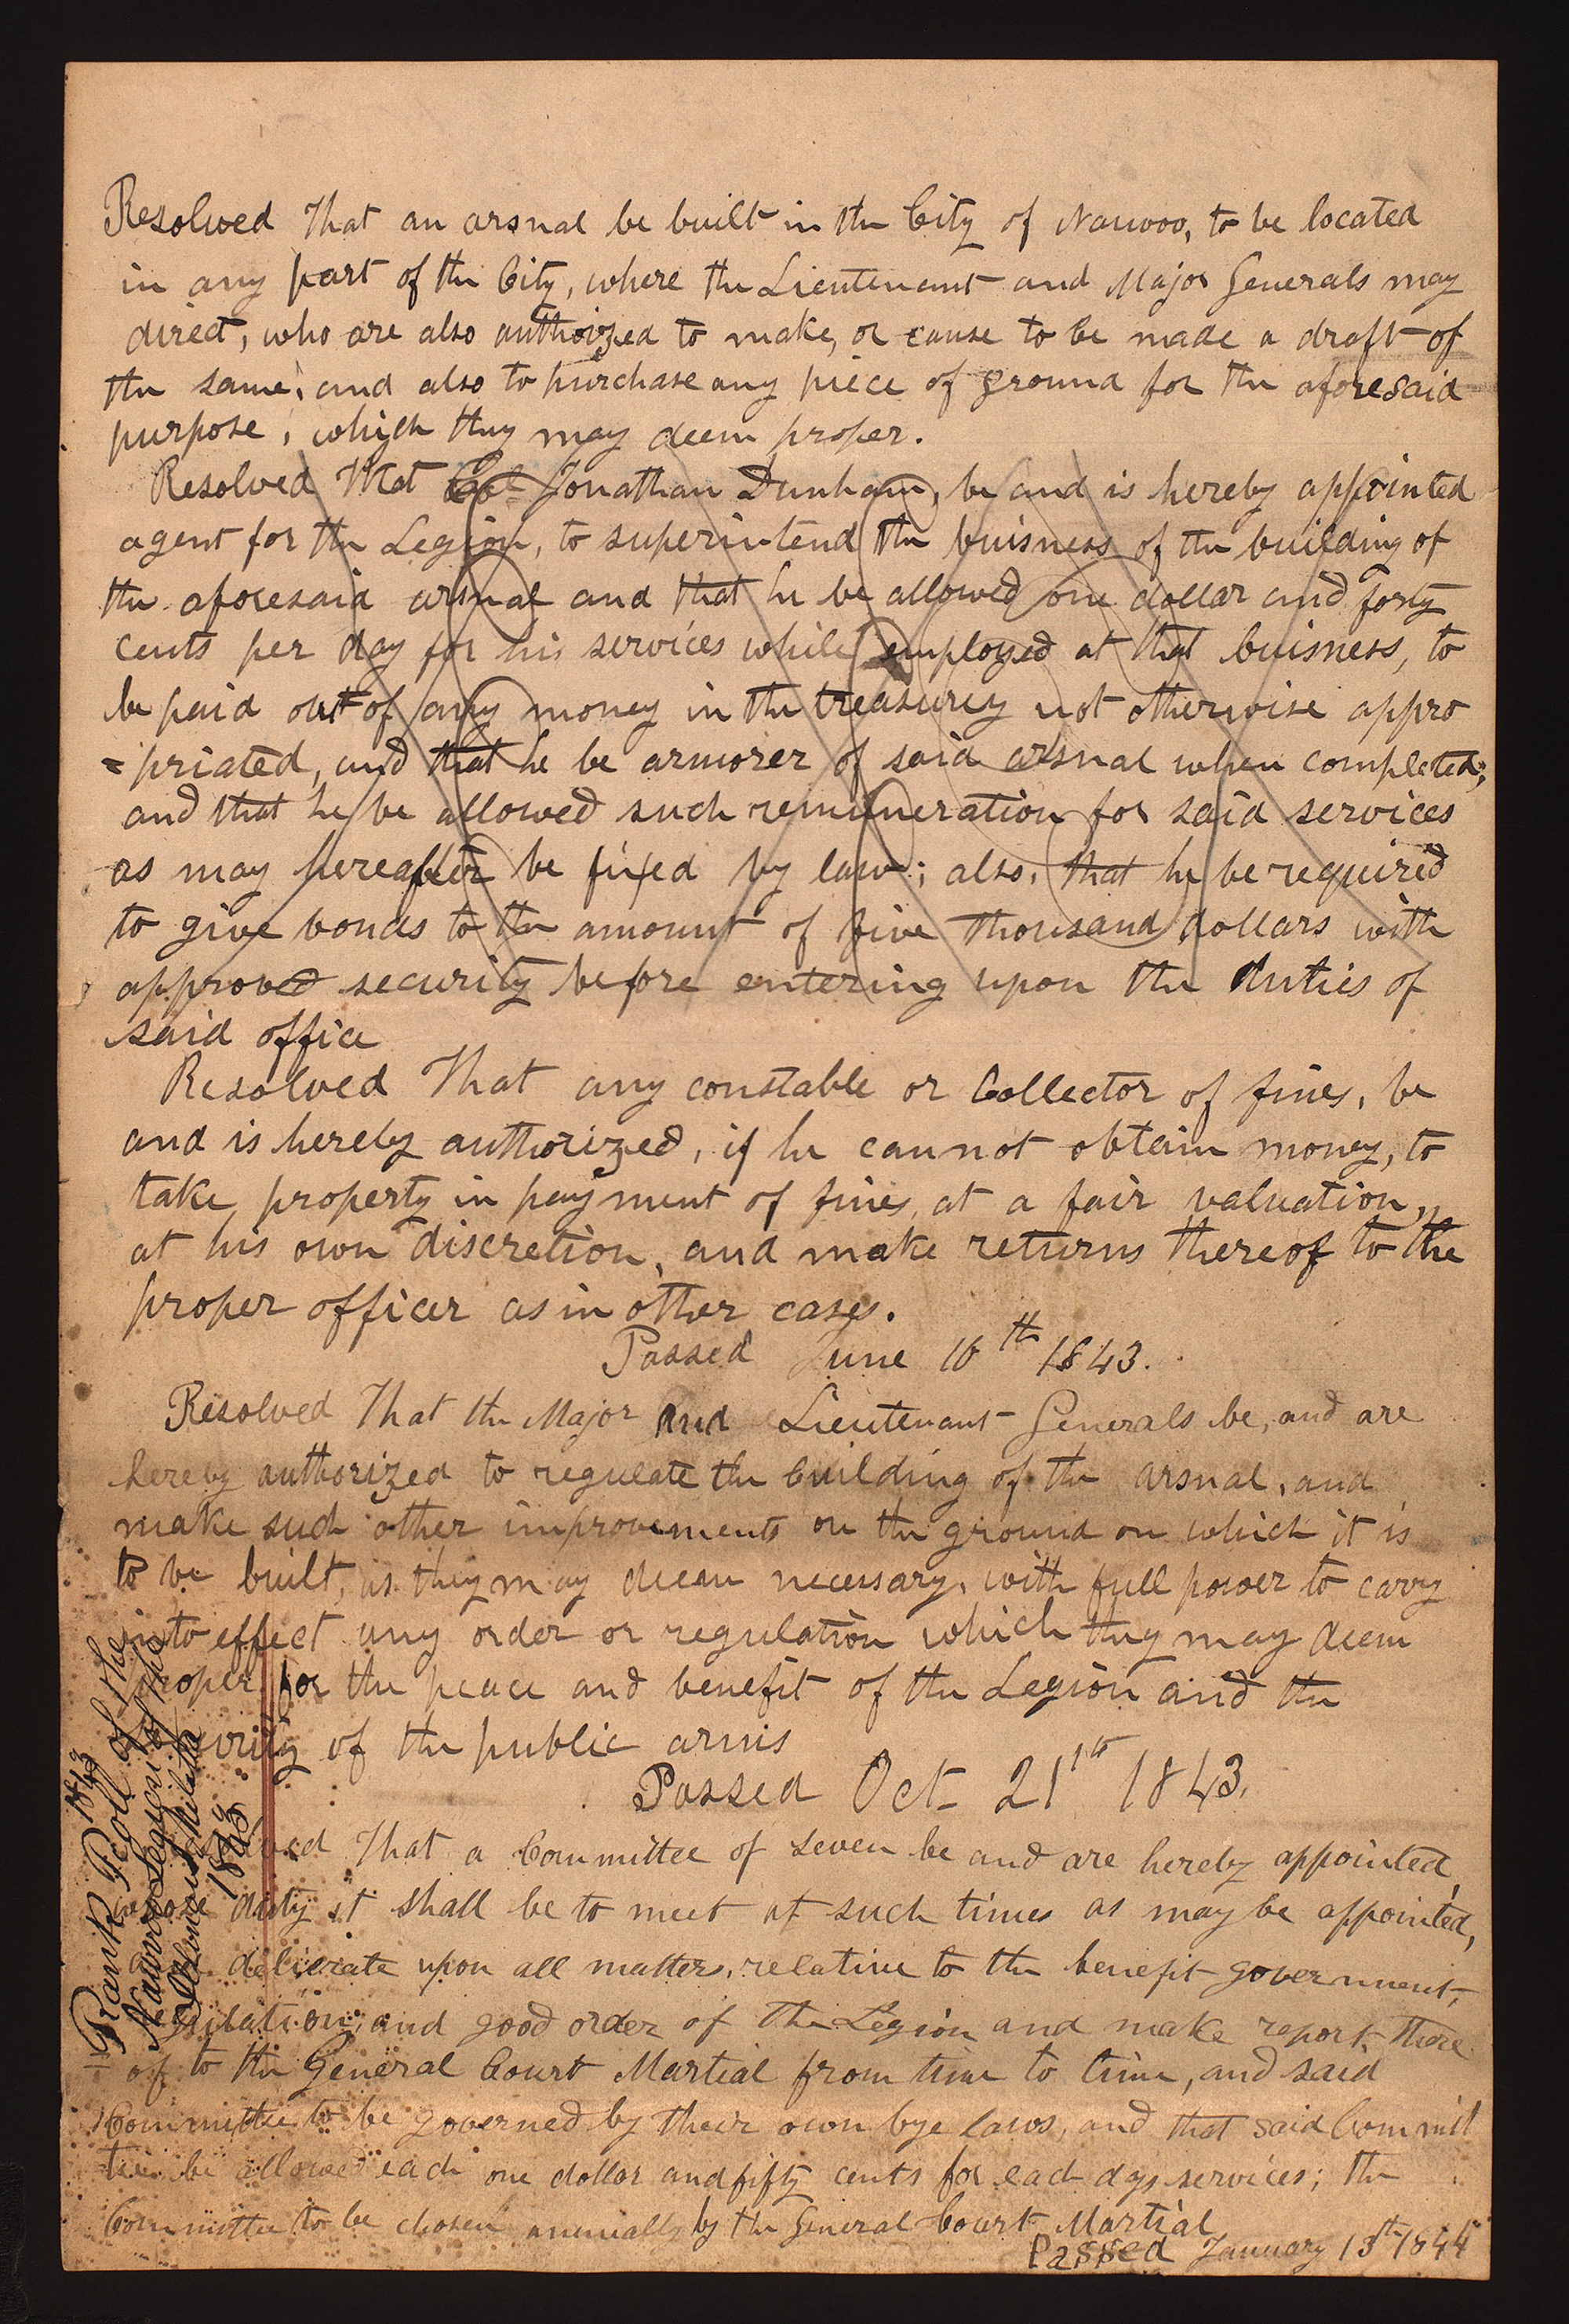 Resolved That an arsnal be built in the City of Nauvoo, to be located
in any part of the City, where the Lieutenant and Major Generals may
direct, who are also authorized to make, or cause to be made a draft of
the same; and also to purchase any piece of ground for the aforesaid
purpose, which they may deem proper.
Resolved That Col Jonathan Dunham, be and is hereby appointed
agent for the Legion, to superintend the buisness of the building of
the aforesaid arsnal and that he be allowed one dollar and forty
cents per day for his services while employed at that buisness, to
be paid out of any money in the treasurey not otherwise appro
=priated, and that he be armorer of said arsnal when completed;
and that he be allowed such remuneration for said services
as may hereafter be fixed by law; also, that he be required
to give bonds to the amount of five thousand dollars with
approved security before entering upon the duties of
said office
Resolved That any constable or Collector of fines, be
and is hereby authorized, if he cannot obtain money, to
take property in payment of fines, at a fair valuation,
at his own discretion, and make returns thereof to the
proper officer as in other cases.
Passed June 10th 1843.
Resolved That the Major and Lieutenant Generals be, and are
hereby authorized to regulate the building of the arsnal, and
make such other improvements on the ground on which it is
to be built, as they may deem necessary, with full power to carry
into effect any order or regulation which they may deem
proper for the peace and benefit of the Legion and the
urity of the public arms
Passed Oct 21th 1843.
lved That a Committee of seven be and are hereby appointed,
whose duty it shall be to meet at such times as may be appointed,
deliverate upon all matters, relative to the benefit government,
gulation, and good order of the Legion and make report there
of to the General Court Martial from time to time, and said
Committee to be governed by their own bye laws, and that said Commit
tee be allowed each one dollar and fifty cents for each days services; the
Committee to be chosen annually by the General Court Martial
Passed January 13th 1844
1843
Rank Roll of the
Nauvoo Legion of the
Militia
1843